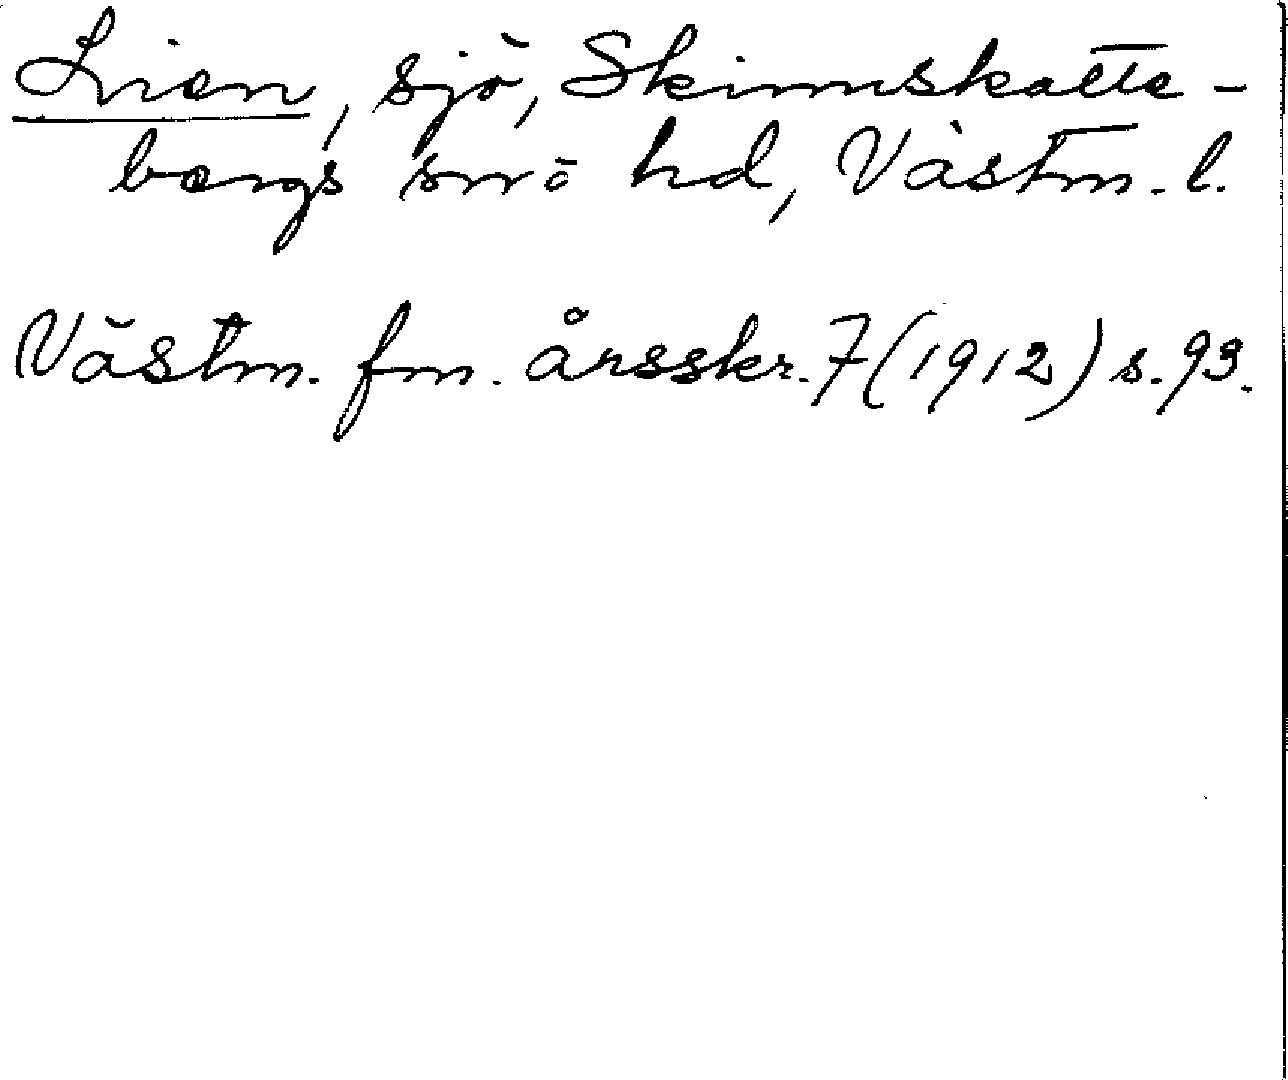 Lien, sjö, Skinnskatte-
bergs sn o hd, Västm. l.
Västm. fm. årsskr. 7 (1912) s. 93.